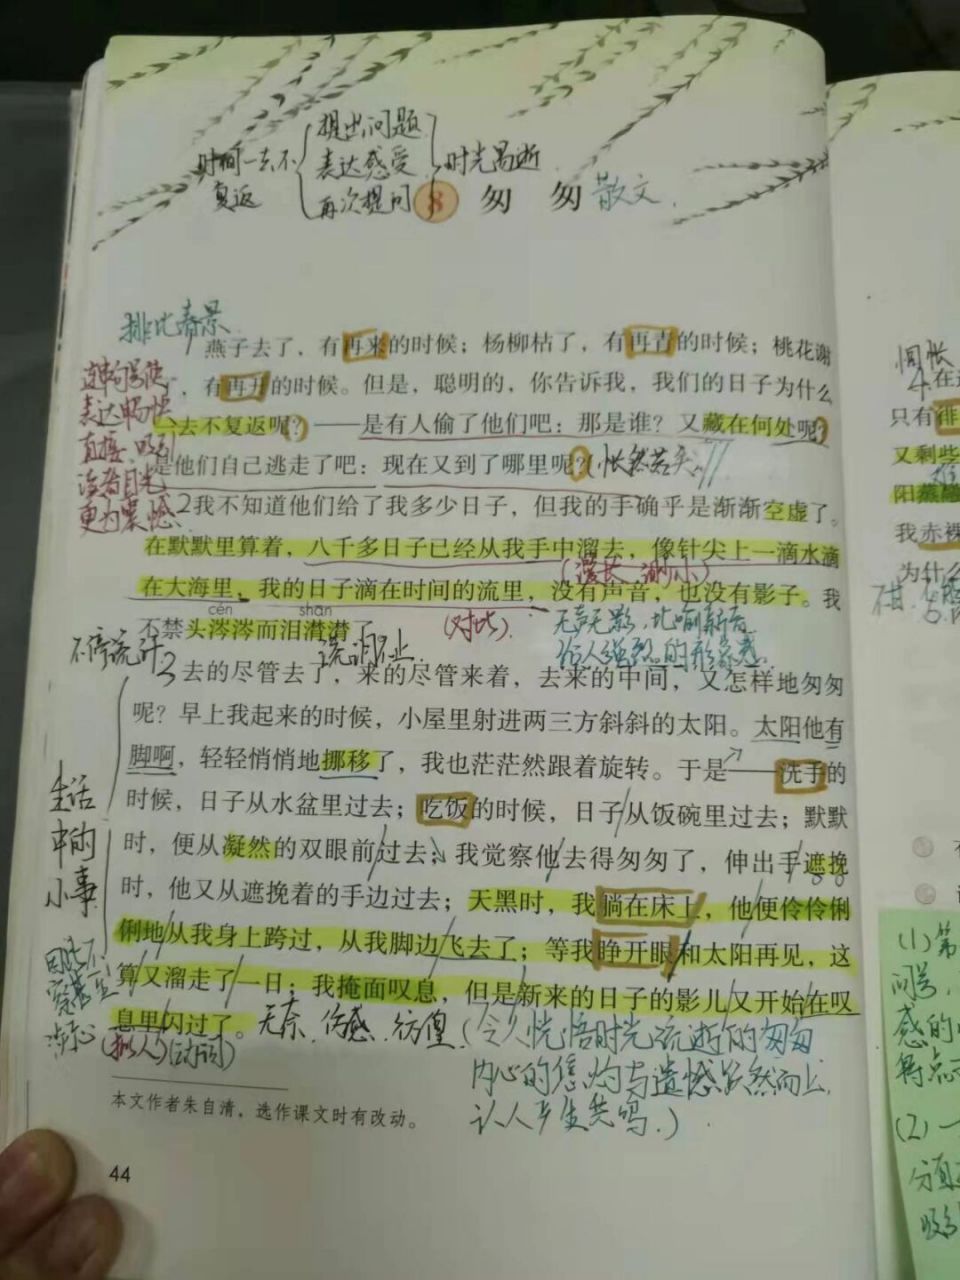 时间一去不
复返
提出问题
表达感受
再次提问
时光易逝
8 匆 匆 散文
排比春景
燕子去了，有再来的时候；杨柳枯了，有再青的时候；桃花谢
了，有再开的时候。但是，聪明的，你告诉我，我们的日子为什么
一去不复返呢？——是有人偷了他们吧：那是谁？又藏在何处呢？
是他们自己逃走了吧：现在又到了哪里呢？(怅然若失)
连串问号使
表达畅快
直接、吸引
读者目光
更为震撼
2我不知道他们给了我多少日子，但我的手确乎是渐渐空虚了。
在默默里算着，八千多日子已经从我手中溜去，像针尖上一滴水滴
(漫长 渺小)
在大海里，我的日子滴在时间的流里，没有声音，也没有影子。我
cén shān
不禁头涔涔而泪潸潸了。
(对比)
无声无影，比喻新奇
给人强烈的形象感
不停流汗
流泪不止
3去的尽管去了，来的尽管来着，去来的中间，又怎样地匆匆
呢？早上我起来的时候，小屋里射进两三方斜斜的太阳。太阳他有
脚啊，轻轻悄悄地挪移了，我也茫茫然跟着旋转。于是——洗手的
时候，日子从水盆里过去；吃饭的时候，日子从饭碗里过去；默默
时，便从凝然的双眼前过去；我觉察他去得匆匆了，伸出手遮挽
时，他又从遮挽着的手边过去；天黑时，我躺在床上，他便伶伶俐
俐地从我身上跨过，从我脚边飞去了；等我睁开眼和太阳再见，这
算又溜走了一日；我掩面叹息，但是新来的日子的影儿又开始在叹
息里闪过了。无奈、伤感、彷徨
生活
中的
小事
(拟人)(动词)
(令人恍悟时光流逝的匆匆
内心的焦灼与遗憾油然而上
认人产生共鸣.)
本文作者朱自清，选作课文时有改动。
44
惆怅
4在
只有徘
又剩些
阳蒸
我赤裸
为什么
(1)第
问号，
感的
特点
(2)一